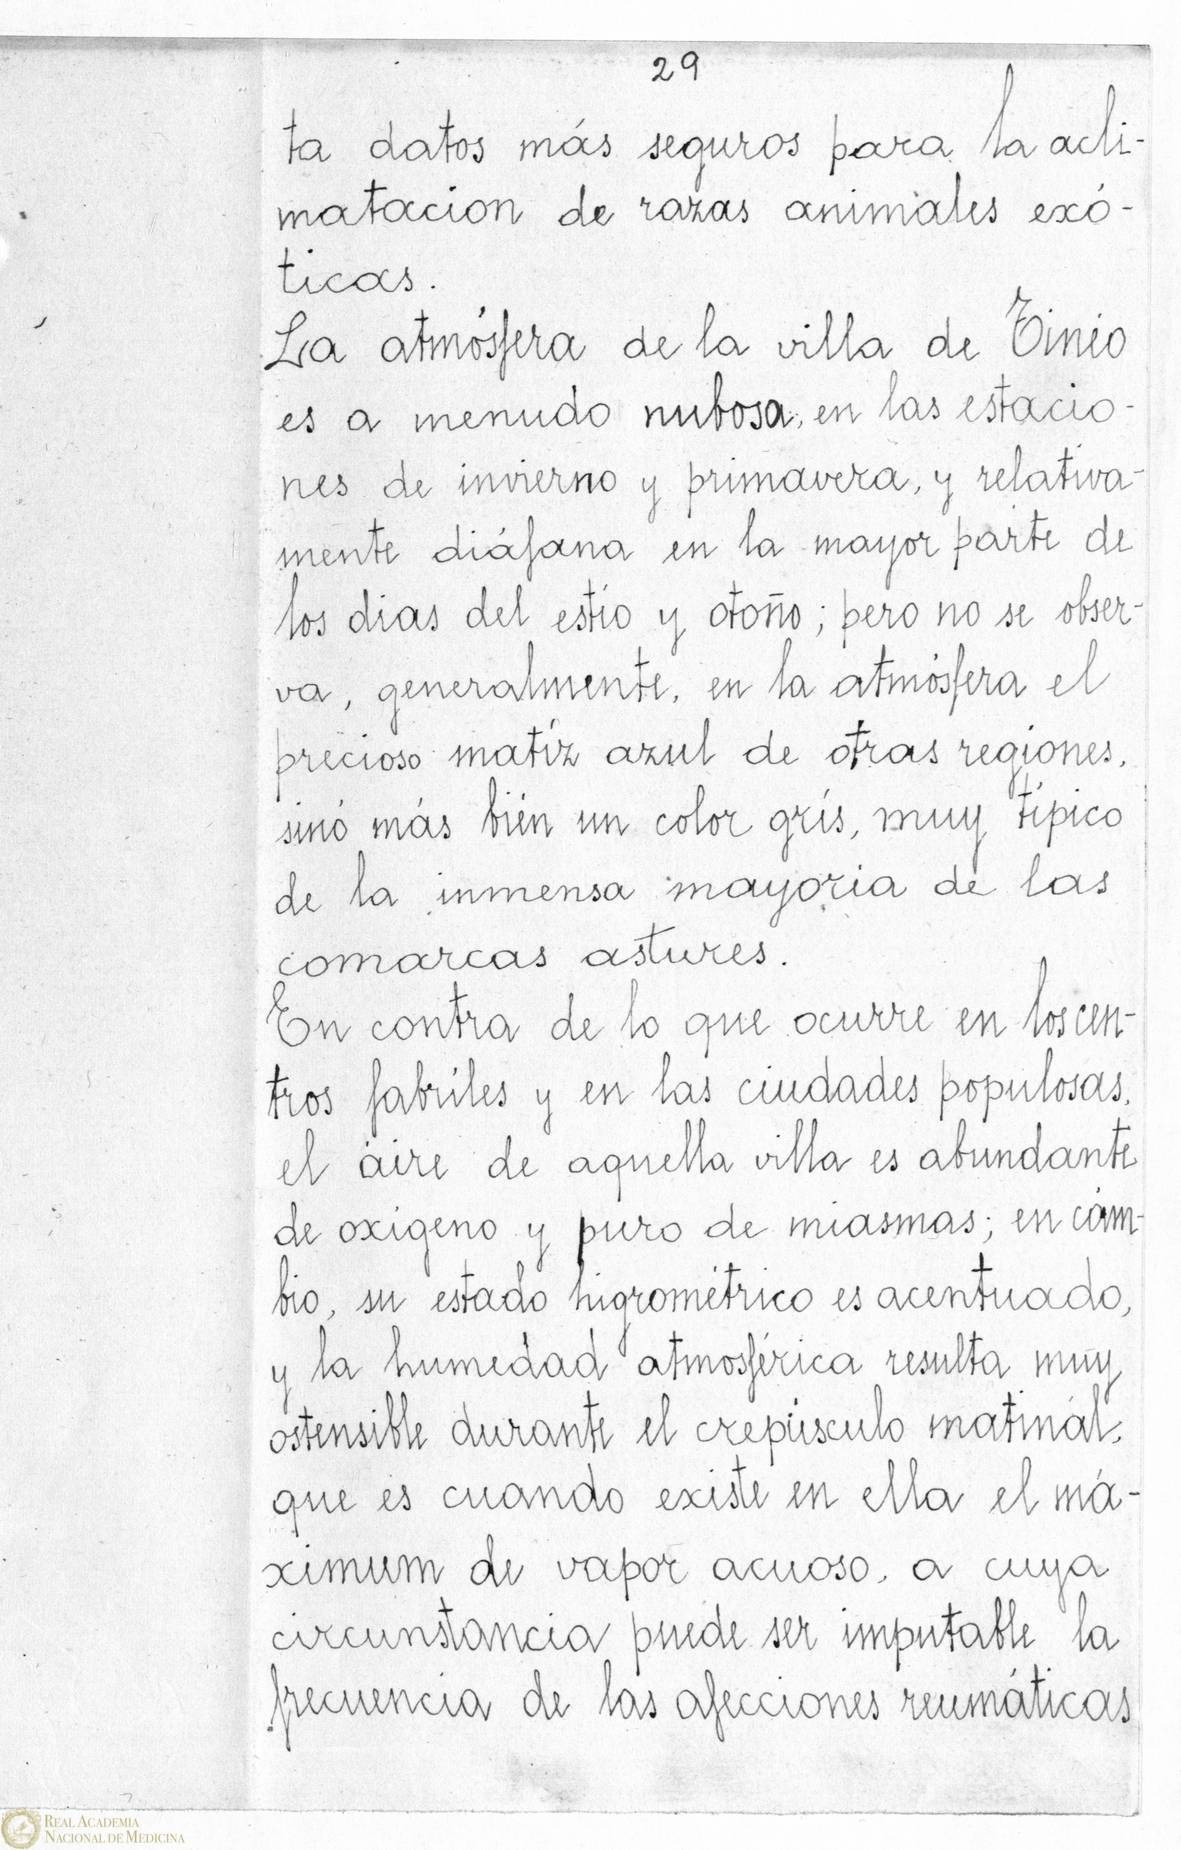 29
ta datos más seguros para la acli-
matacion de razas animales exó-
ticas.
La atmósfera de la villa de Tinéo
es a menudo nubosa, en las estacio-
nes de invierno y primavera, y relativa-
mente diáfana en la mayor parte de
los dias del estío y otoño; pero no se obser-
va, generalmente, en la atmósfera el
precioso matíz azul de otras regiones,
sinó más bién un color grís, muy típico
de la inmensa mayoria de las
comarcas astures.
En contra de lo que ocurre en los cen-
tros fabríles y en las ciudades populosas,
el áire de aquella villa es abundante
de oxígeno y puro de miasmas; en cám-
bio, su estado higrométrico es acentuado,
y la humedad atmosférica resulta muy
ostensible durante el crepúsculo matinál,
que es cuando existe en ella el má-
ximum de vapor acuoso, a cuya
circunstancia puede ser imputable la
frecuencia de las afecciones reumáticas
REAL ACADEMIA
NACIONAL DE MEDICINA